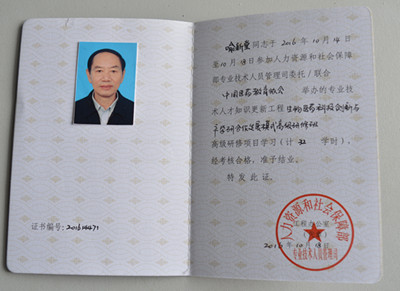 同志于 2016 年 10 月 14 日
至 10 月 18 日参加人力资源和社会保障
部专业技术人员管理司委托/联合
中国医药教育协会 举办的专业技
术人才知识更新工程 生物医药科技创新与
产学研合作发展模式高级研修班
高级研修项目学习(计 32 学时)。
经考核合格,准予结业。
特发此证。
工程办公室
2016 年 10 月 18 日
人力资源和社会保障部
专业技术人员管理司
证书编号: